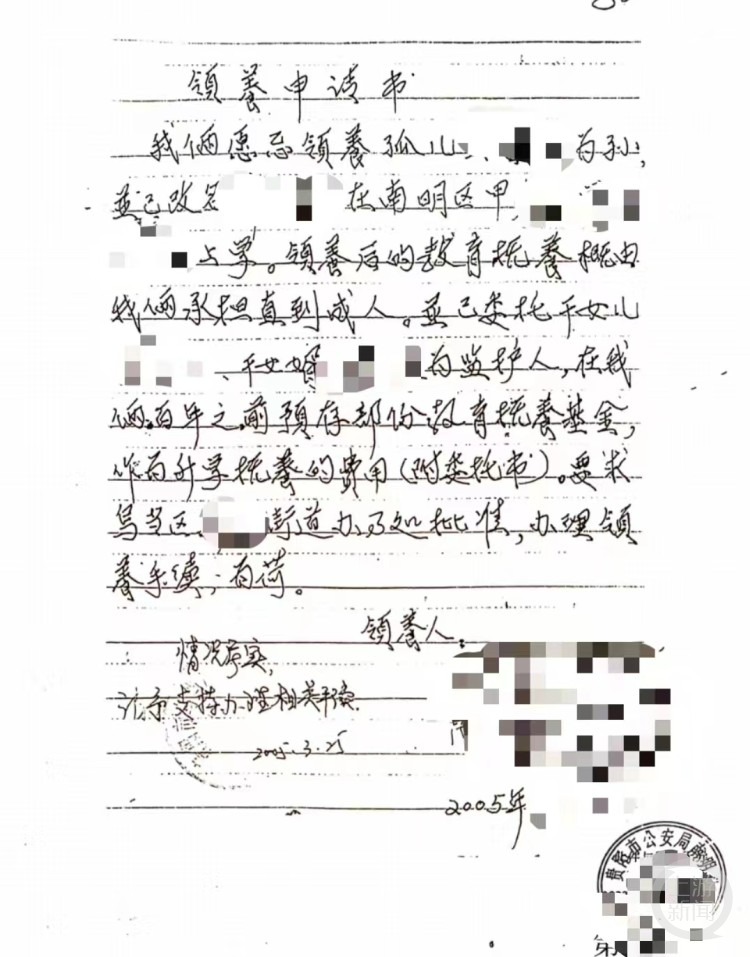 领養申请书
我俩愿意领養孤儿 为孙，
並已改名 在南明区甲
上学。领養后的教育抚養概由
我俩承担直到成人。並已委托干女儿
、干女婿 为监护人，在我
俩百年之前预存部份教育抚養基金，
作为升学抚養的费用(附委托书)。要求
乌当区 街道办事处批准，办理领
養手续；为荷。
领養人：
情况属实，
请予支持办理相关手续
2005.3.25
2005年
贵阳市公安局南明
上游新闻
第